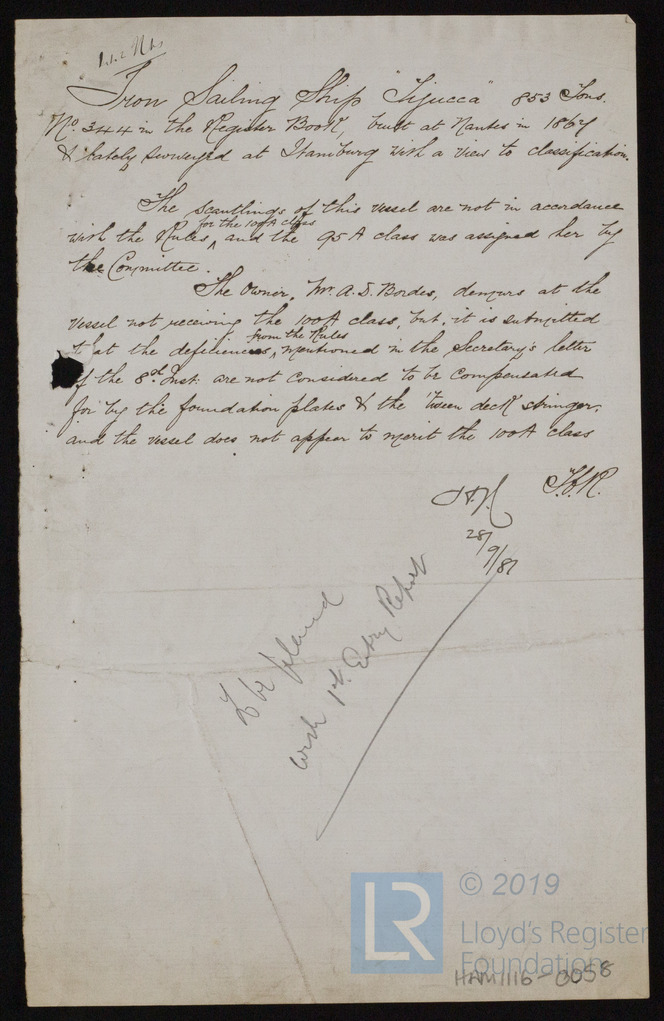 Iron Sailing Ship "Tijucca" 853 Tons.
No. 344 in the Register Book, built at Nantes in 1867
& lately surveyed at Hamburg with a view to classification.
The scantlings of this vessel are not in accordance
for the 100A class
with the Rules, and the 95A class was assigned her by
the Committee.
The Owner, Mr. A. D. Bordes, demurs at the
vessel not receiving the 100A class, but, it is submitted
from the Rules
that the deficiences, mentioned in the Secretary's letter
of the 8th Inst: are not considered to be compensated
for by the foundation plates & the 'tween deck stringer,
and the vessel does not appear to merit the 100A class
28/9/81
To be placed
with 1st Entry Report
LR
© 2019
Lloyd's Register
Foundation
HAM1116-0058